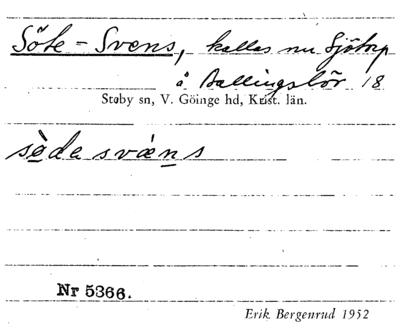 Söte-Svens, kallas nu Sjötorp
å Ballingslöv 18
Stoby sn, V. Göinge hd, Krist. län.
sø̀de svæns
Nr 5366.
Erik Bergenrud 1952